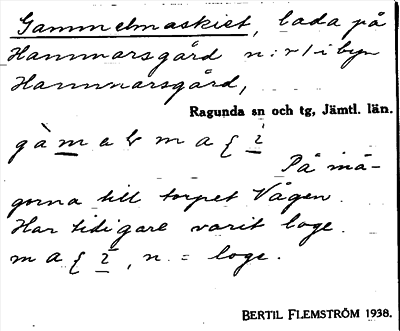 Gammelmaskiet, lada på
Hammarsgård n:r 1 i byn
Hammarsgård,
Ragunda sn och tg, Jämtl. län.
På må-
gorna till torpet Vågen.
Har tidigare varit loge.
n. = loge.
BERTIL FLEMSTRÖM 1938.